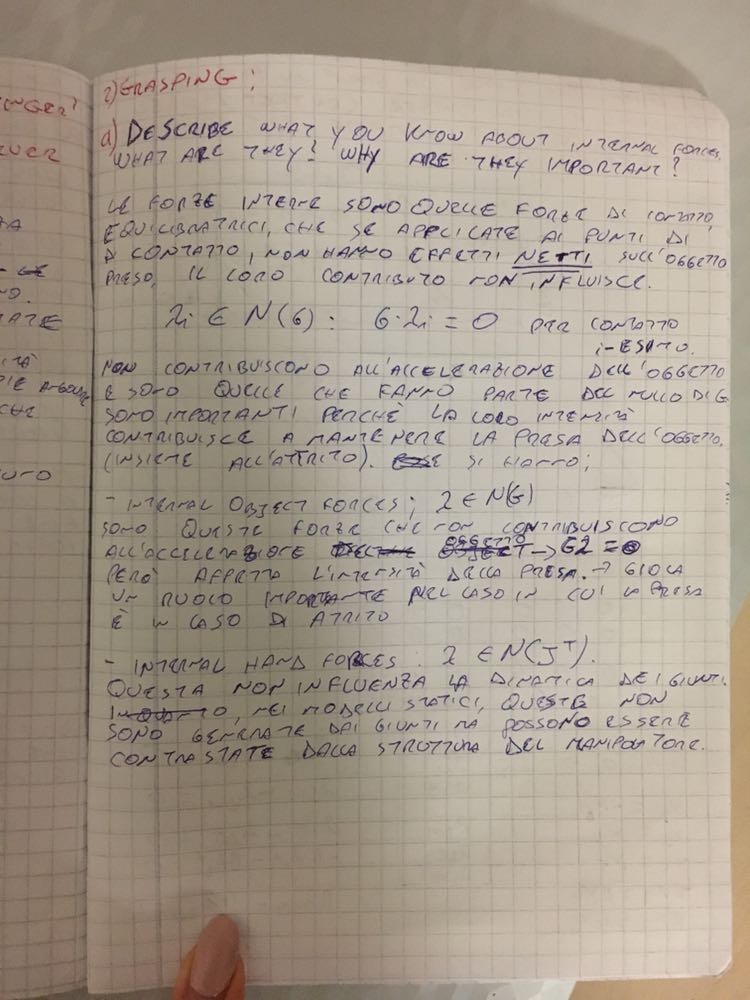 INGER?
2) GRASPING:
a) DESCRIBE WHAT YOU KNOW ABOUT INTERNAL FORCES.
WHAT ARE THEY? WHY ARE THEY IMPORTANT?
LE FORZE INTERNE SONO QUELLE FORZE DI CONTATTO,
EQUILIBRATRICI, CHE SE APPLICATE AI PUNTI DI
DI CONTATTO, NON HANNO EFFETTI NETTI SULL'OGGETTO
PRESO, IL LORO CONTRIBUTO NON INFLUISCE.
λi ∈ N(G): G·λi = 0 PER CONTATTO
i-ESIMO.
NON CONTRIBUISCONO ALL'ACCELERAZIONE DELL'OGGETTO
E SONO QUELLE CHE FANNO PARTE DEL NULLO DI G
SONO IMPORTANTI PERCHÈ LA LORO INTENSITÀ
CONTRIBUISCE A MANTENERE LA PRESA DELL'OGGETTO.
(INSIEME ALL'ATTRITO). SI HANNO;
- INTERNAL OBJECT FORCES; λ ∈ N(G)
SONO QUESTE FORZE CHE NON CONTRIBUISCONO
ALL'ACCELERAZIONE OGGETTO → Gλ = 0
PERÒ AFFETTA L'INTENSITÀ DELLA PRESA. → GIOCA
UN RUOLO IMPORTANTE NEL CASO IN CUI LA PRESA
È IN CASO DI ATRITO
- INTERNAL HAND FORCES: λ ∈ N(J^T).
QUESTA NON INFLUENZA LA DINAMICA DEI GIUNTI.
, NEI MODELLI STATICI, QUESTE NON
SONO GENERATE DAI GIUNTI MA POSSONO ESSERE
CONTRASTATE DALLA STRUTTURA DEL MANIPOLATORE.